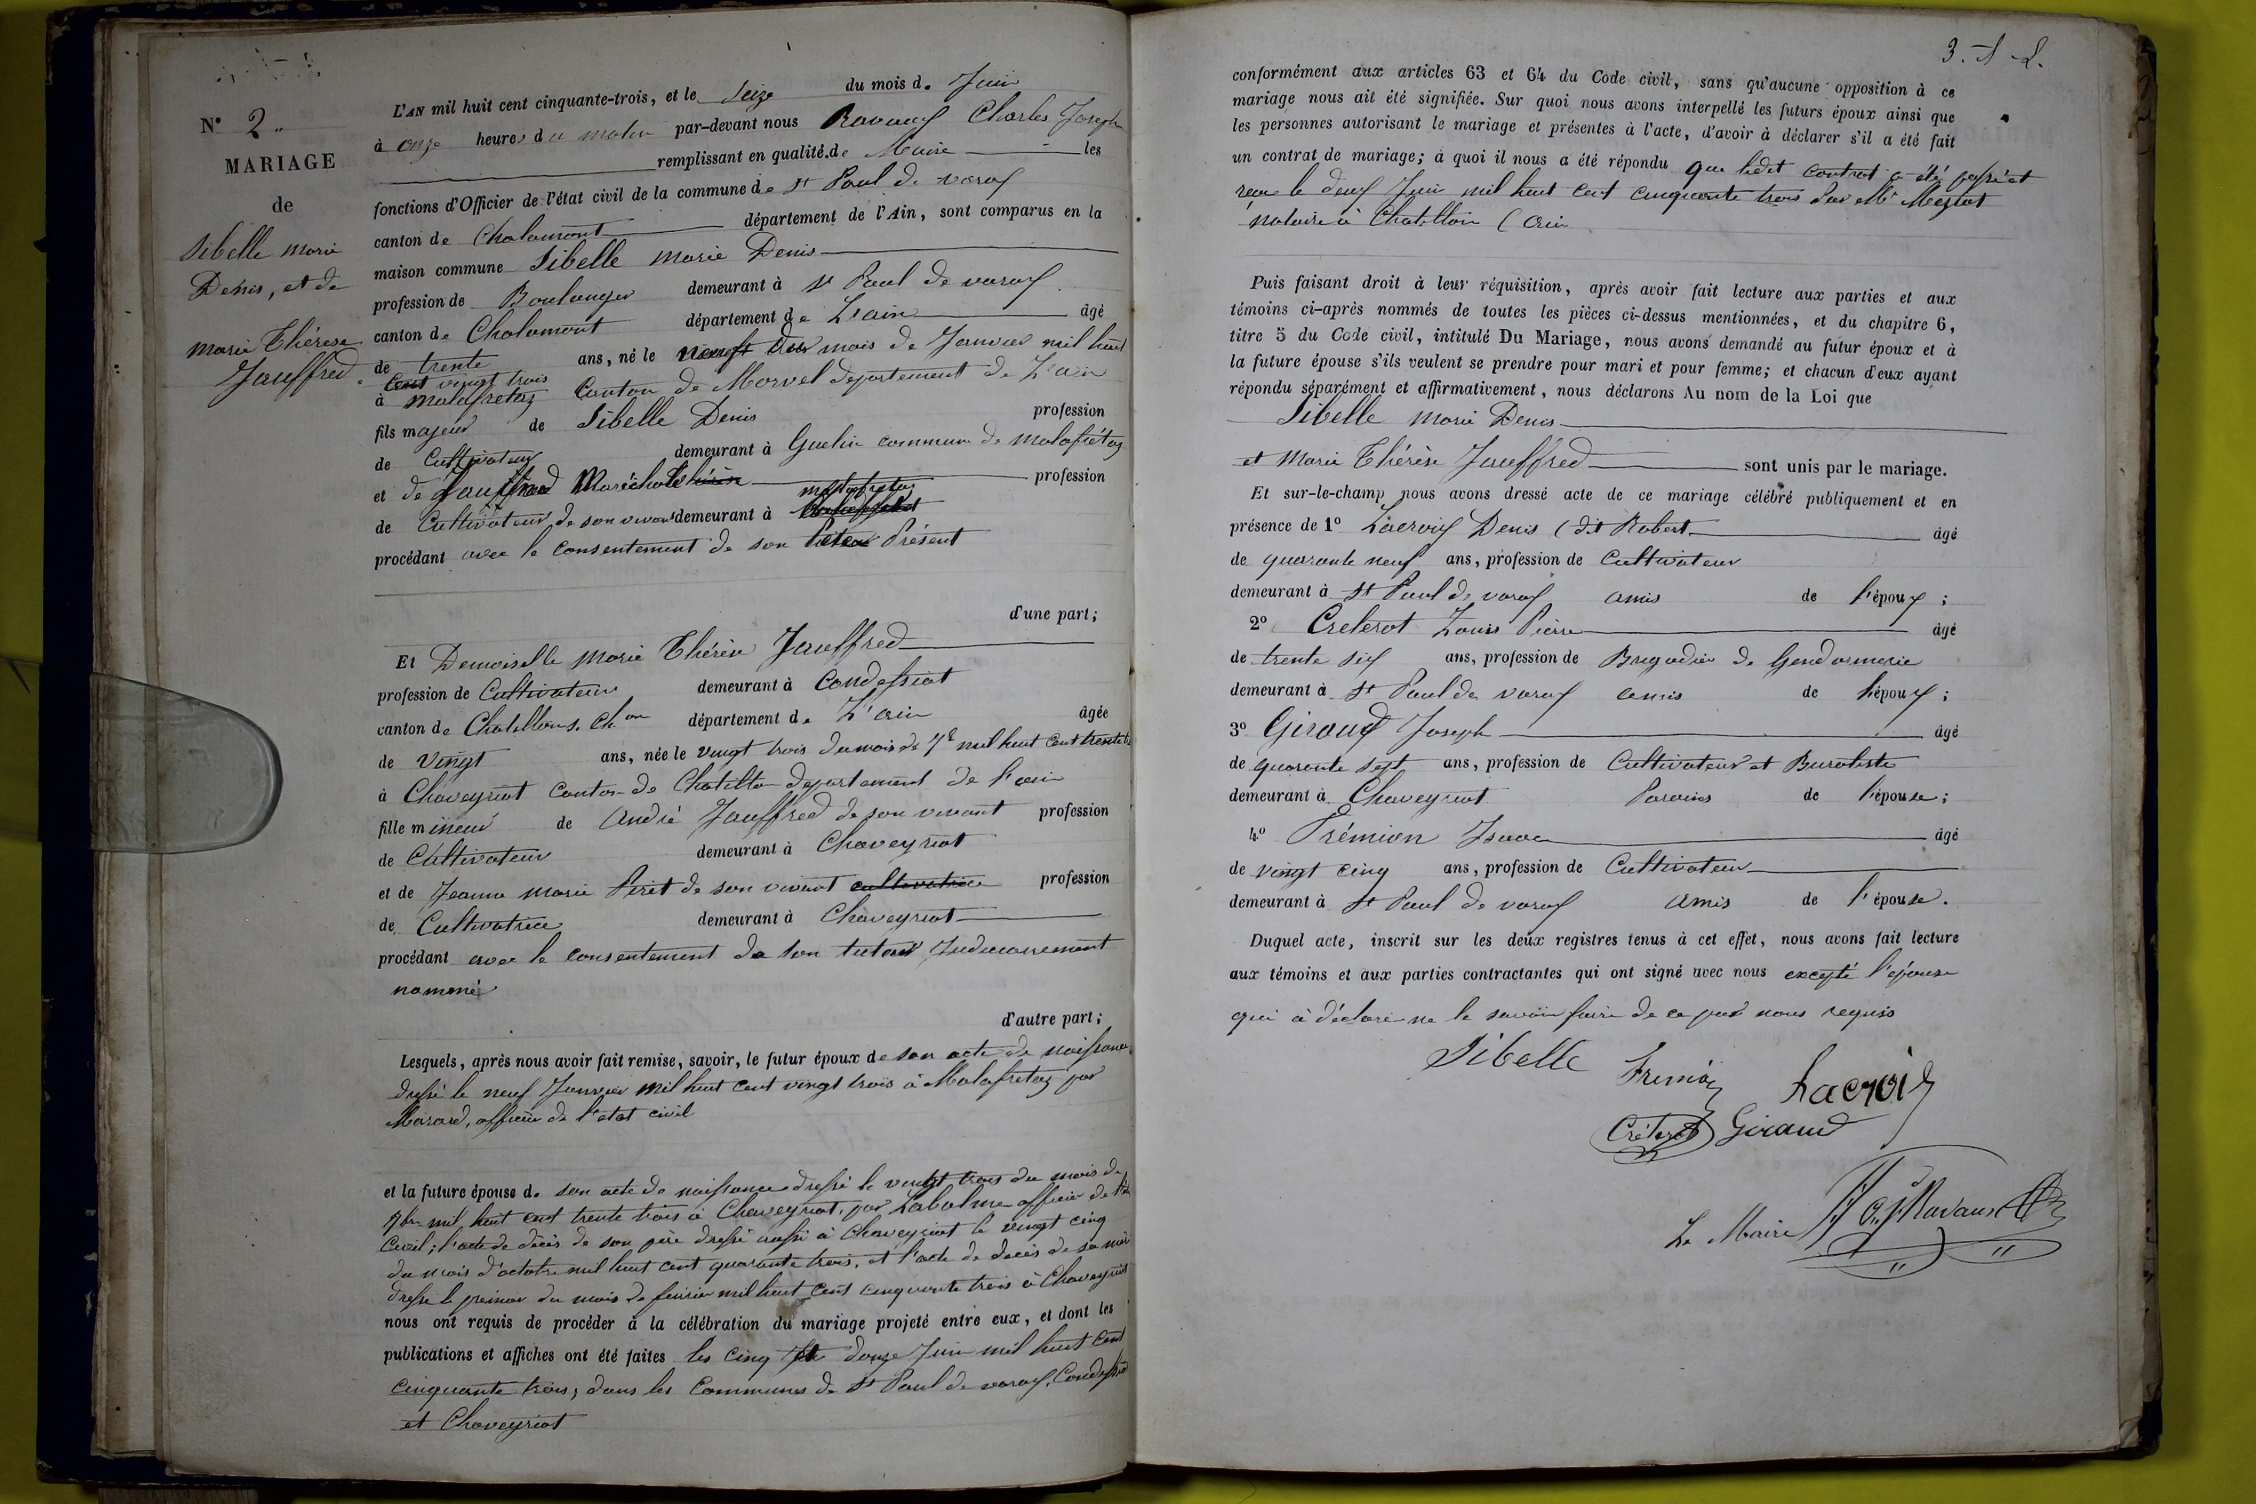 N° 2
MARIAGE
de
Sibelle marie
Denis, et de
marie Thérèse
Jauffred.
L'AN mil huit cent cinquante-trois, et le Seize du mois d. Juin
à onze heures du matin par-devant nous Ravaux Charles Joseph
remplissant en qualité de Maire les
fonctions d'Officier de l'état civil de la commune de St Paul de varax
canton de Chalamont département de l'Ain, sont comparus en la
maison commune Sibelle marie Denis
profession de Boulanger demeurant à St Paul de varax
canton de Chalamont département de L'ain âgé
de trente ans, né le neuf du mois de Janvier mil huit
cent vingt trois
à malafretaz Canton de Morvel département de L'ain
fils majeur de Sibelle Denis profession
de Cultivateur demeurant à Guelin commune de malafrétaz
et de Maréchal profession
de Cultivateur de son vivant demeurant à malafretaz
procédant avec le consentement de son Présent
d'une part;
Et Demoiselle marie Thérèse Jauffred
profession de Cultivateur demeurant à Condessiat
canton de Chatillon s. Chon département de L'ain âgée
de vingt ans, née le vingt trois du mois de 7b mil huit cent trente
à Chaveyriat Canton de Chatillon département de l'ain
fille mineur de André Jauffred de son vivant profession
de Cultivateur demeurant à Chaveyriat
et de Jeanne marie Piret de son vivant cultivatrice profession
de Cultivatrice demeurant à Chaveyriat
procédant avec le consentement de son tuteur Judiciairement
nommé
d'autre part;
Lesquels, après nous avoir fait remise, savoir, le futur époux de son acte de naissance
dressé le neuf Janvier mil huit cent vingt trois à Malafretaz par
Marand, officier de l'etat civil
et la future épouse d. son acte de naissance dressé le vingt trois du mois de
7bre mil huit cent trente trois à Chaveyriat, par Labalme officier de l'état
Civil; l'acte de décès de son père dressé aussi à Chaveyriat le vingt cinq
du mois d'octobre mil huit cent quarante trois, et l'acte de décès de sa mère
dressé le premier du mois de février mil huit cent cinquante trois à Chaveyriat
nous ont requis de procéder à la célébration du mariage projeté entre eux, et dont les
publications et affiches ont été faites les cinq et douze Juin mil huit cent
cinquante trois, dans les Communes de St Paul de varax, Condessiat
et Chaveyriat
conformément aux articles 63 et 64 du Code civil, sans qu'aucune opposition à ce
mariage nous ait été signifiée. Sur quoi nous avons interpellé les futurs époux ainsi que
les personnes autorisant le mariage et présentes à l'acte, d'avoir à déclarer s'il a été fait
un contrat de mariage; à quoi il nous a été répondu que ledit contrat a été passé et
reçu le deux Juin mil huit cent cinquante trois Par Me
notaire à Chatillon (ain
Puis faisant droit à leur réquisition, après avoir fait lecture aux parties et aux
témoins ci-après nommés de toutes les pièces ci-dessus mentionnées, et du chapitre 6,
titre 5 du Code civil, intitulé Du Mariage, nous avons demandé au futur époux et à
la future épouse s'ils veulent se prendre pour mari et pour femme; et chacun d'eux ayant
répondu séparément et affirmativement, nous déclarons Au nom de la Loi que
Sibelle marie Denis
et Marie Thérèse Jauffred sont unis par le mariage.
Et sur-le-champ nous avons dressé acte de ce mariage célébré publiquement et en
présence de 1° Lacroix Denis (dit Robert âgé
de quarante neuf ans, profession de Cultivateur
demeurant à St Paul de varax amis de l'époux;
2° Creterot Louis Pierre âgé
de trente six ans, profession de Brigadier de Gendarmerie
demeurant à St Paul de varax amis de l'époux;
3° Giraud Joseph âgé
de quarante sept ans, profession de Cultivateur et Buraliste
demeurant à Chaveyriat Parains de l'épouse;
4° Frémion Isaac âgé
de vingt cinq ans, profession de Cultivateur
demeurant à St Paul de varax amis de l'épouse.
Duquel acte, inscrit sur les deux registres tenus à cet effet, nous avons fait lecture
aux témoins et aux parties contractantes qui ont signé avec nous excepté l'épouse
qui à déclaré ne le savoir faire de ce par nous requis
Sibelle Fremion Lacroix
Créterot Giraud
Le Maire Ravaux